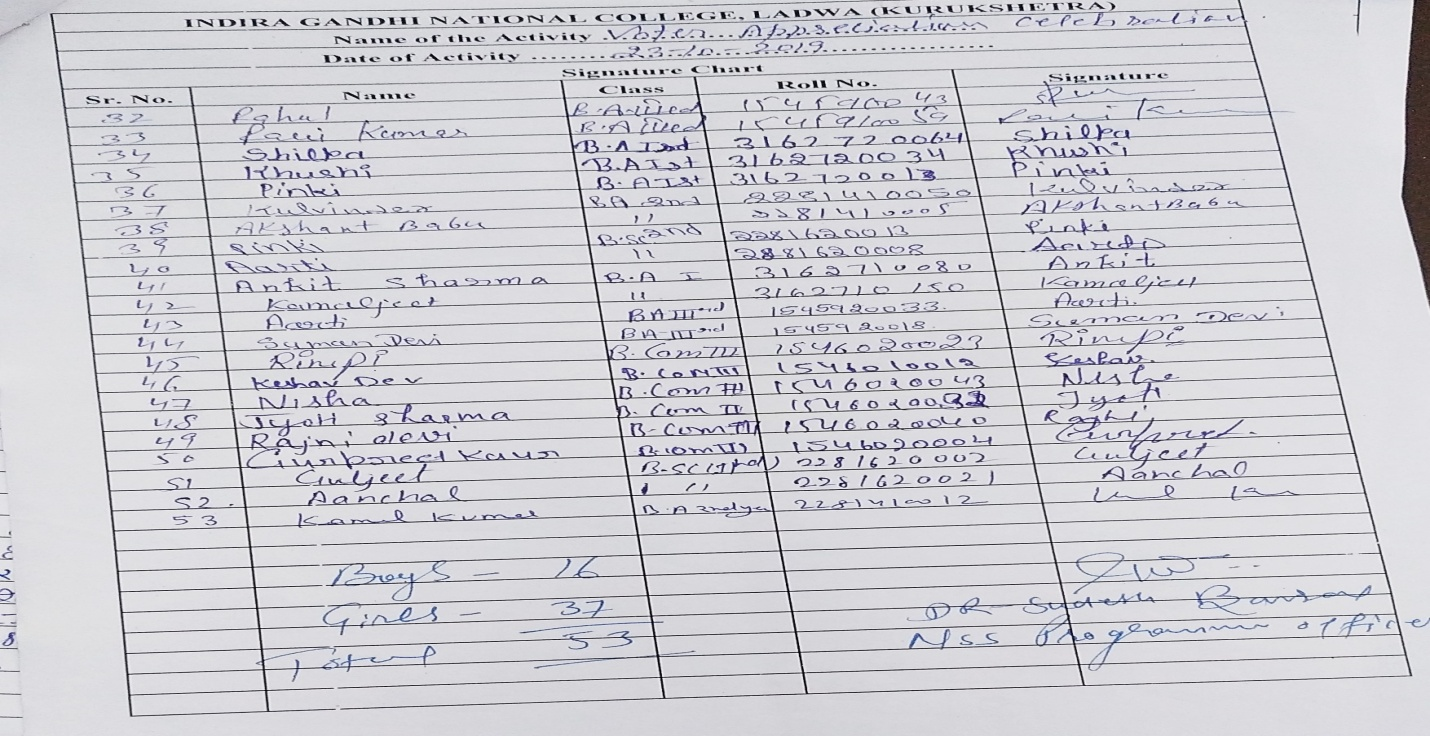 INDIRA GANDHI NATIONAL COLLEGE, LADWA (KURUKSHETRA)
Name of the Activity Voter Appreciation Celebration
Date of Activity ........23-10-2019................
Signature Chart
Sr. No. Name Class Roll No. Signature
32 Rahul B.A 43
33 Ravi Kumar B.A 59
34 Shilpa B.A 3162720064 Shilpa
35 Khushi B.A Ist 3162720034 Khushi
36 Pinki B.A Ist 3162720013 Pinki
37 Kulvinder BA 2nd 2281410050 Kulvinder
38 AKshant Babu " 2281410005 AKshant Babu
39 Pinki B.Sc 2nd 2281620013 Pinki
40 Aarti " 2281620008
41 Ankit Sharma B.A I 3162710080 Ankit
42 Kamaljeet " 3162710150 Kamaljeet
43 Aarti BA IIIrd 1545920033 Aarti.
44 Suman Devi BA IIIrd 1545920018 Suman Devi
45 Rimpi B.Com III 1546020023 Rimpi
46 Keshav Dev B.Com III 1546010012 Keshav
47 Nisha B.Com III 1546020043 Nisha
48 Jyoti Sharma B.Com III Jyoti
49 Rajni devi B-Com III 1546020040 Rajni
50 Gurpreet Kaur B.Com III 1546020004 Gurpreet
51 Guljeet B.Sc 2281620002 Guljeet
52. Aanchal " 2281620021 Aanchal
53 Kamal Kumar B.A 2ndyr 2281410012
Boys - 16
Girls - 37
Total 53
DR. Sudesh
NSS Programme officer